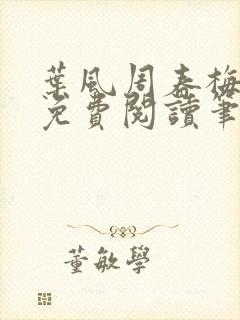 葉風周春梅
免費閱讀筆
董敏學